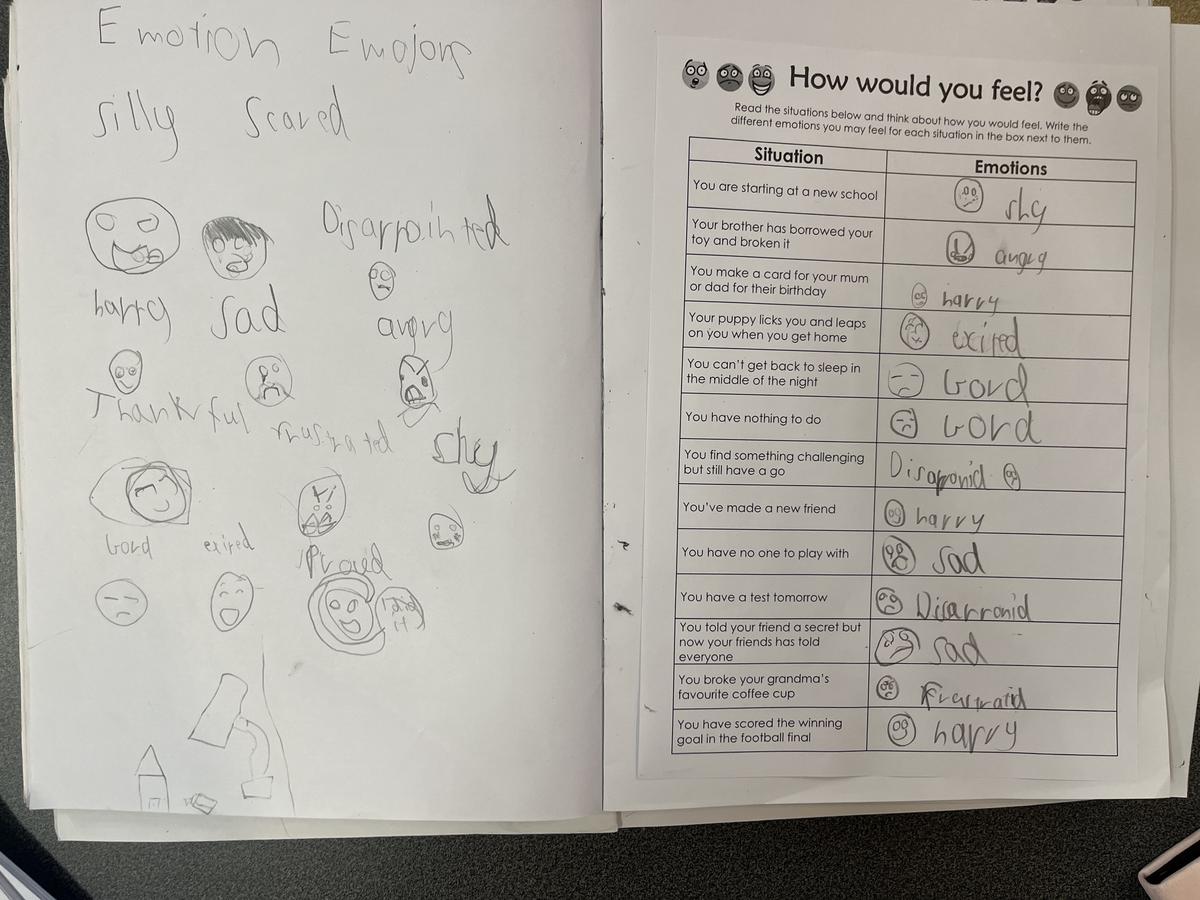 Emotion Emojons
silly scared
Disappointed
happy sad angry
Thankful frustrated shy
bord exited Proud
I did it
How would you feel?
Read the situations below and think about how you would feel. Write the
different emotions you may feel for each situation in the box next to them.
Situation Emotions
You are starting at a new school shy
Your brother has borrowed your
toy and broken it angry
You make a card for your mum
or dad for their birthday happy
Your puppy licks you and leaps
on you when you get home exited
You can't get back to sleep in
the middle of the night bord
You have nothing to do bord
You find something challenging
but still have a go Disapponid
You've made a new friend happy
You have no one to play with sad
You have a test tomorrow Disapponid
You told your friend a secret but
now your friends has told
everyone sad
You broke your grandma's
favourite coffee cup Frustratid
You have scored the winning
goal in the football final happy